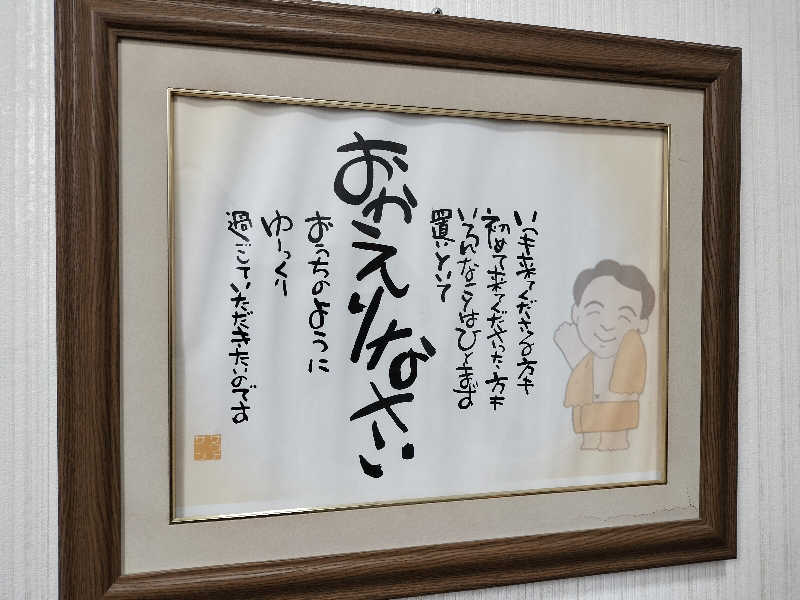 いつも来てくださる方も
初めて来てくださった方も
いろんなことはひとまず
置いといて
おかえりなさい
おうちのように
ゆっくり
過ごしていただきたいのです